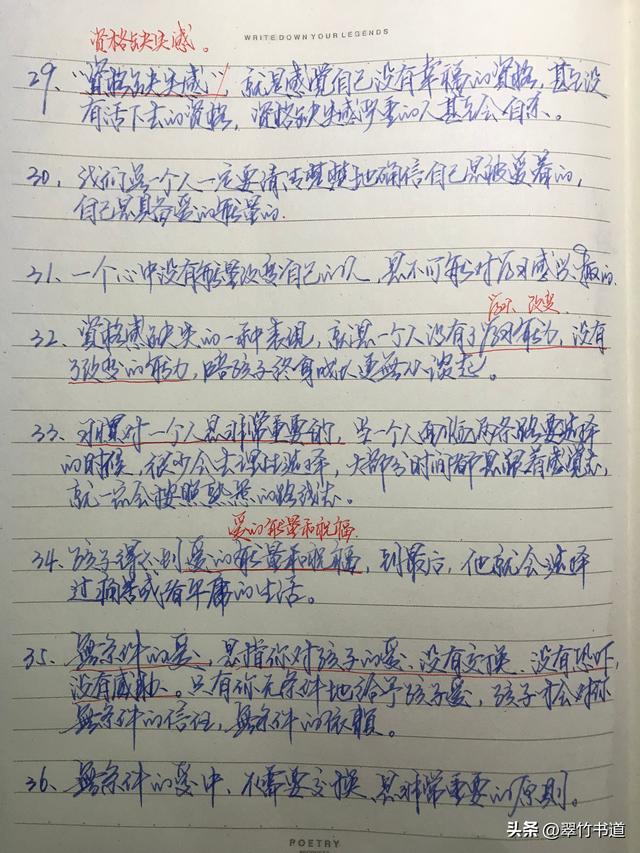 WRITE DOWN YOUR LEGENDS
资格缺失感。
29、"资格缺失感"，就是感觉自己没有幸福的资格，甚至没
有活下去的资格，资格缺失感严重的人甚至会自杀。
30、我们每一个人一定要清清楚楚地确信自己是被爱着的，
自己是具备爱的能量的.
31、一个心中没有能量改变自己的人，是不可能对应对感兴趣的.
应对、改变
32、资格感缺失的一种表现，就是一个人没有了应对能力，没有
了改变的能力，陪孩子终身成长更无从谈起。
33、习惯对一个人是非常重要的，当一个人面临两条路要选择
的时候，很少会去理性选择，大部分时间都是跟着感觉走，
就一定会按照熟悉的路线走。
爱的能量和祝福
34、孩子得不到爱的能量和祝福，到最后，他就会选择
过痛苦或者平庸的生活。
35、無条件的爱、是指你对孩子的爱、没有交换、没有恐吓、
没有威胁、。只有你无条件地给予孩子爱，孩子才会对你
無条件的信任，無条件的依賴。
36、無条件的爱中、不需要交换、是非常重要的原则。
POETRY
头条 @翠竹书道